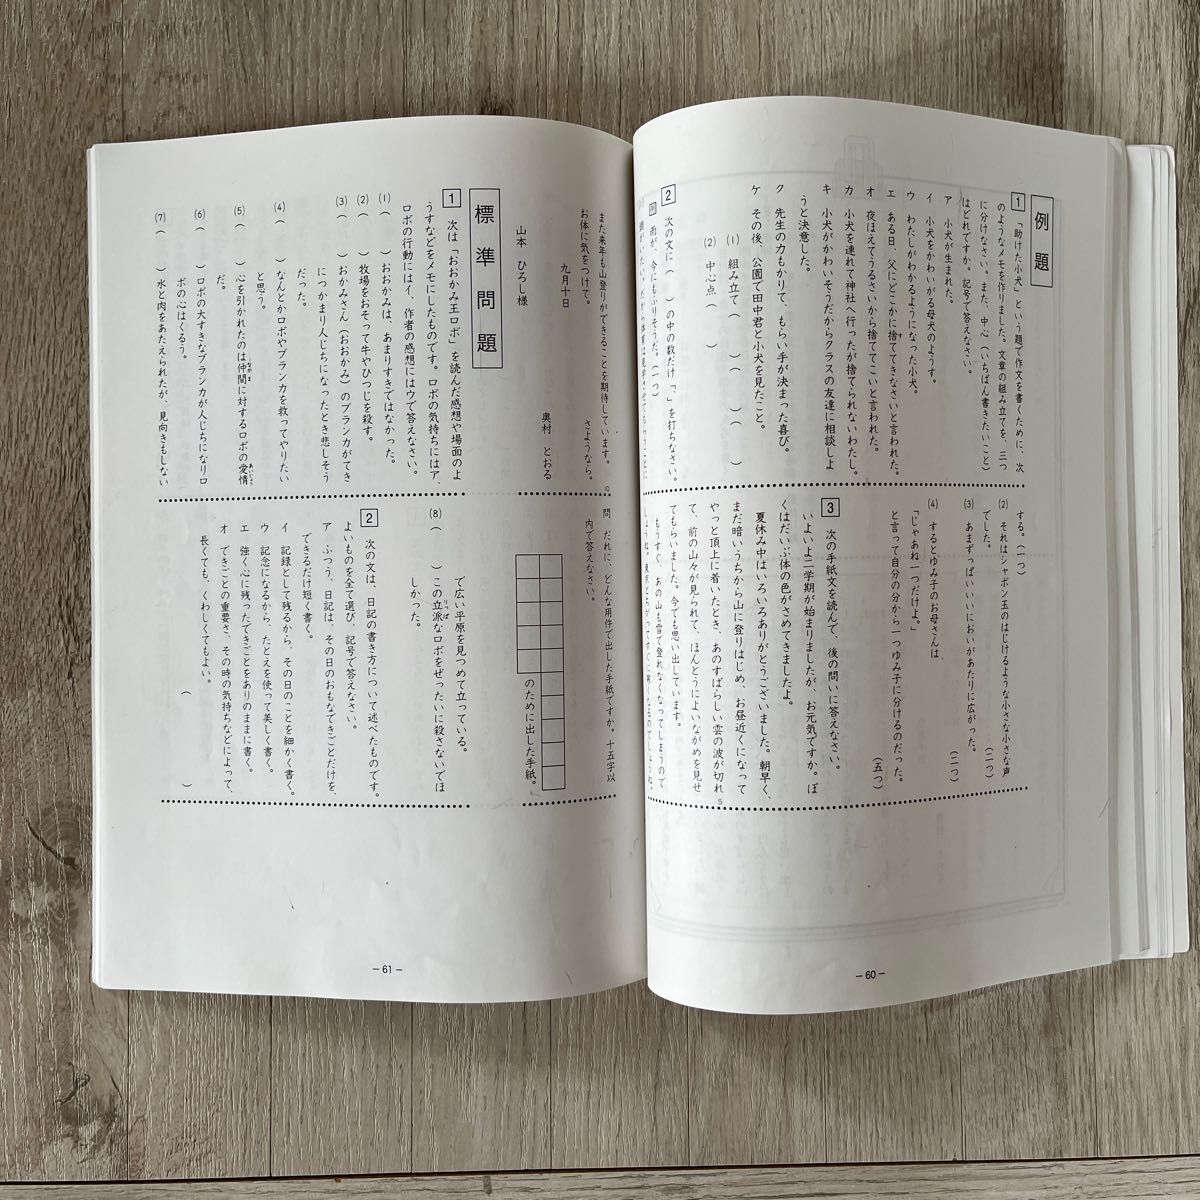 例題
1 「助けた小犬」という題で作文を書くために、次
のようなメモを作りました。文章の組み立てを、三つ
に分けなさい。また、中心（いちばん書きたいこと）
はどれですか。記号で答えなさい。
ア 小犬が生まれた。
イ 小犬をかわいがる母犬のようす。
ウ わたしがわかるようになった小犬。
エ ある日、父にどこかに捨ててきなさいと言われた。
オ 夜ほえてうるさいから捨ててこいと言われた。
カ 小犬を連れて神社へ行ったが捨てられないわたし。
キ 小犬がかわいそうだからクラスの友達に相談しよ
うと決意した。
ク 先生の力もかりて、もらい手が決まった喜び。
ケ その後、公園で田中君と小犬を見たこと。
(1) 組み立て（ ）（ ）（ ）
(2) 中心点（ ）
2 次の文に（ ）の中の数だけ「、」を打ちなさい。
例 雨が、今にもふりそうだ。（一つ）
する。（一つ）
(2) それはシャボン玉のはじけるような小さな小さな声
でした。（二つ）
(3) あまずっぱいいいにおいがあたりに広がった。
（二つ）
(4) するとゆみ子のお母さんは、
「じゃあね一つだけよ。」
と言って自分の分から一つゆみ子に分けるのだった。
（五つ）
3 次の手紙文を読んで、後の問いに答えなさい。
いよいよ二学期が始まりましたが、お元気ですか。ぼ
くはだいぶ体の色がさめてきましたよ。
夏休み中はいろいろありがとうございました。朝早く、
まだ暗いうちから山に登りはじめ、お昼近くになって
やっと頂上に着いたとき、あのすばらしい雲の波が切れ
て、前の山々が見られて、ほんとうによいながめを見せ
てもらいました。今でも思い出しています。
もうすぐ、あの山も雪で登れなくなってしまうので
5
－60－
また来年も山登りができることを期待しています。
お体に気をつけて。
さようなら。
九月十日
奥村 とおる
山本 ひろし様
10
問 だれに、どんな用件で出した手紙ですか。十五字以
内で答えなさい。
のために出した手紙。
標準問題
1 次は「おおかみ王ロボ」を読んだ感想や場面のよ
うすなどをメモにしたものです。ロボの気持ちにはア、
ロボの行動にはイ、作者の感想にはウで答えなさい。
(1)（ ）おおかみは、あまりすきではなかった。
(2)（ ）牧場をおそって牛やひつじを殺す。
(3)（ ）おかみさん（おおかみ）のブランカがてき
につかまり人じちになったとき悲しそう
だった。
(4)（ ）なんとかロボやブランカを救ってやりたい
と思う。
(5)（ ）心を引かれたのは仲間に対するロボの愛情
だ。
(6)（ ）ロボの大すきなブランカが人じちになりロ
ボの心はくるう。
(7)（ ）水と肉をあたえられたが、見向きもしない
で広い平原を見つめて立っている。
(8)（ ）この立派なロボをぜったいに殺さないでほ
しかった。
2 次の文は、日記の書き方について述べたものです。
よいものを全て選び、記号で答えなさい。
ア ふつう、日記は、その日のおもなできごとだけを、
できるだけ短く書く。
イ 記録として残るから、その日のことを細かく書く。
ウ 記念になるから、たとえを使って美しく書く。
エ 強く心に残ったできごとをありのままに書く。
オ できごとの重要さ、その時の気持ちなどによって、
長くても、くわしくてもよい。
（ ）
－61－